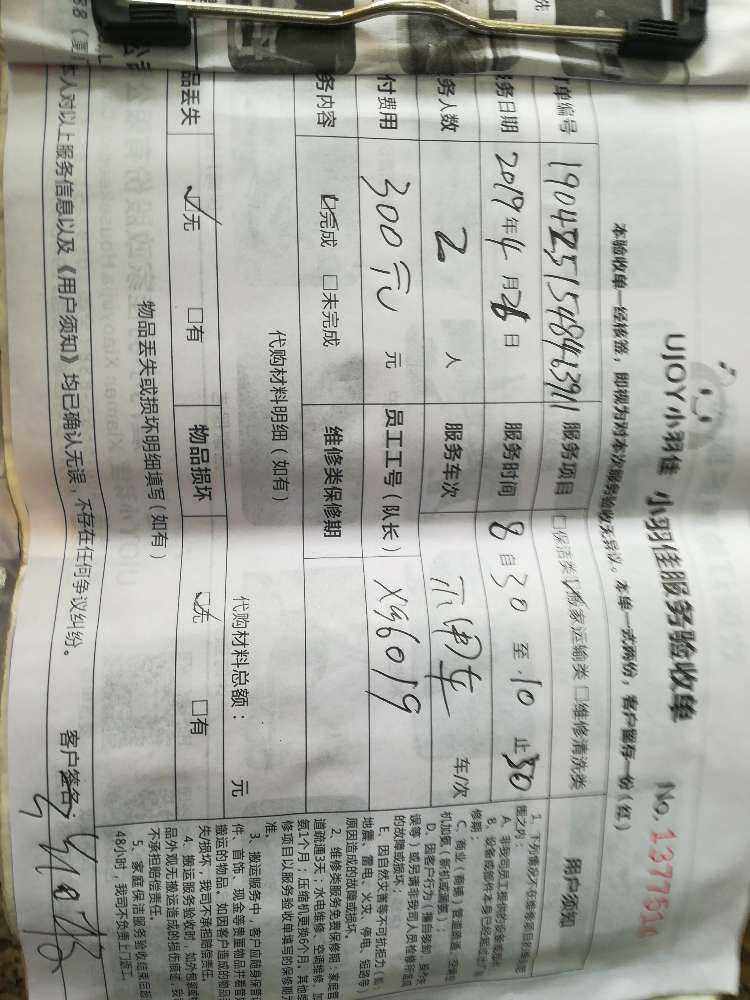 UJOY小羽佳 小羽佳服务验收单 No. 1377514
本验收单一经核签，即视为对本次服务验收无异议。本单一式两份，客户留存一份（红）
单编号
服务项目 □保洁类 ☑搬家运输类 □维修清洗类
务日期 2019年4月26日 服务时间 8自30至10止30
务人数 2人 服务车次 不用车 车/次
付费用 300元 元 员工工号（队长） XS6019
务内容 ☑完成 □未完成 维修类保修期
代购材料明细（如有） 代购材料总额： 元
品丢失 ☑无 □有 物品损坏 ☑无 □有
物品丢失或损坏明细填写（如有）
本人对以上服务信息以及《用户须知》均已确认无误，不存在任何争议纠纷。
客户签名：
用户须知
D、因客户行为（擅自移卸
误等）或另请非我司人员检修所造成
的故障或损坏；
E、因自然灾害等不可抗拒力（如
地震、雷电、火灾、停电、短路等）
原因造成的故障或损坏。
2、维修类服务免费保修期：家庭管
道疏通3天；水电维修、空调维修、加
氨1个月；压缩机更换6个月，其他维
修项目以服务验收单填写的保修期为
准。
3、搬运服务中，客户应随身保管证
件、首饰、现金等贵重物品并看管
搬运的物品，如因客户造成的物品
失/损坏，我司不承担赔偿责任。
4、搬运服务验收时，如外包装或
品外观无搬运造成的损伤痕迹，我
不承担赔偿责任
5、家庭保洁服务验收结束后超
48小时，我司不负责上门返工。